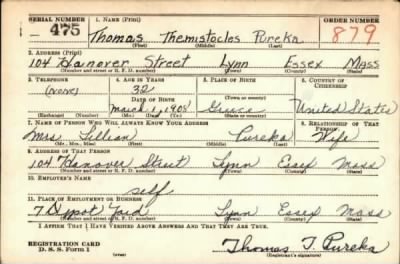 SERIAL NUMBER 1. NAME (Print) ORDER NUMBER
475 Thomas Themistocles Pureka 879
(First) (Middle) (Last)
2. ADDRESS (Print)
104 Hanover Street Lynn Essex Mass
(Number and street or R. F. D. number) (Town) (County) (State)
3. TELEPHONE 4. AGE IN YEARS 5. PLACE OF BIRTH 6. COUNTRY OF CITIZENSHIP
(None) 32
DATE OF BIRTH (Town or county)
March 1, 1908 Greece United States
(Exchange) (Number) (Mo.) (Day) (Yr.) (State or country)
7. NAME OF PERSON WHO WILL ALWAYS KNOW YOUR ADDRESS 8. RELATIONSHIP OF THAT PERSON
Mrs. Lillian Pureka Wife
(Mr., Mrs., Miss) (First) (Middle) (Last)
9. ADDRESS OF THAT PERSON
104 Hanover Street Lynn Essex Mass
(Number and street or R. F. D. number) (Town) (County) (State)
10. EMPLOYER'S NAME
self
11. PLACE OF EMPLOYMENT OR BUSINESS
7 Depot Yard Lynn Essex Mass
(Number and street or R. F. D. number) (Town) (County) (State)
I AFFIRM THAT I HAVE VERIFIED ABOVE ANSWERS AND THAT THEY ARE TRUE.
REGISTRATION CARD
D. S. S. Form 1 (over) Thomas T. Pureka
(Registrant's signature)